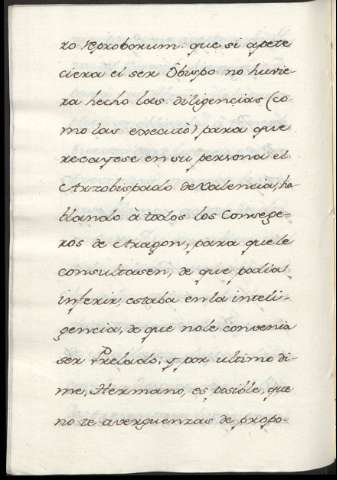 ro reproborum. que si apete
ciera el ser Obispo no huvie
ra hecho las diligencias (co
mo las executò) para que
recayese en su persona el
Arzobispado de Valencia, ha
blando à todos los Consege-
ros de Aragon, para que le
consultasen, de que podia
inferir, estaba en la inteli-
gencia, de que no le convenia
ser Prelado; y por ultimo di-
me, Hermano, es posible, que
no te averguenzas de propo-